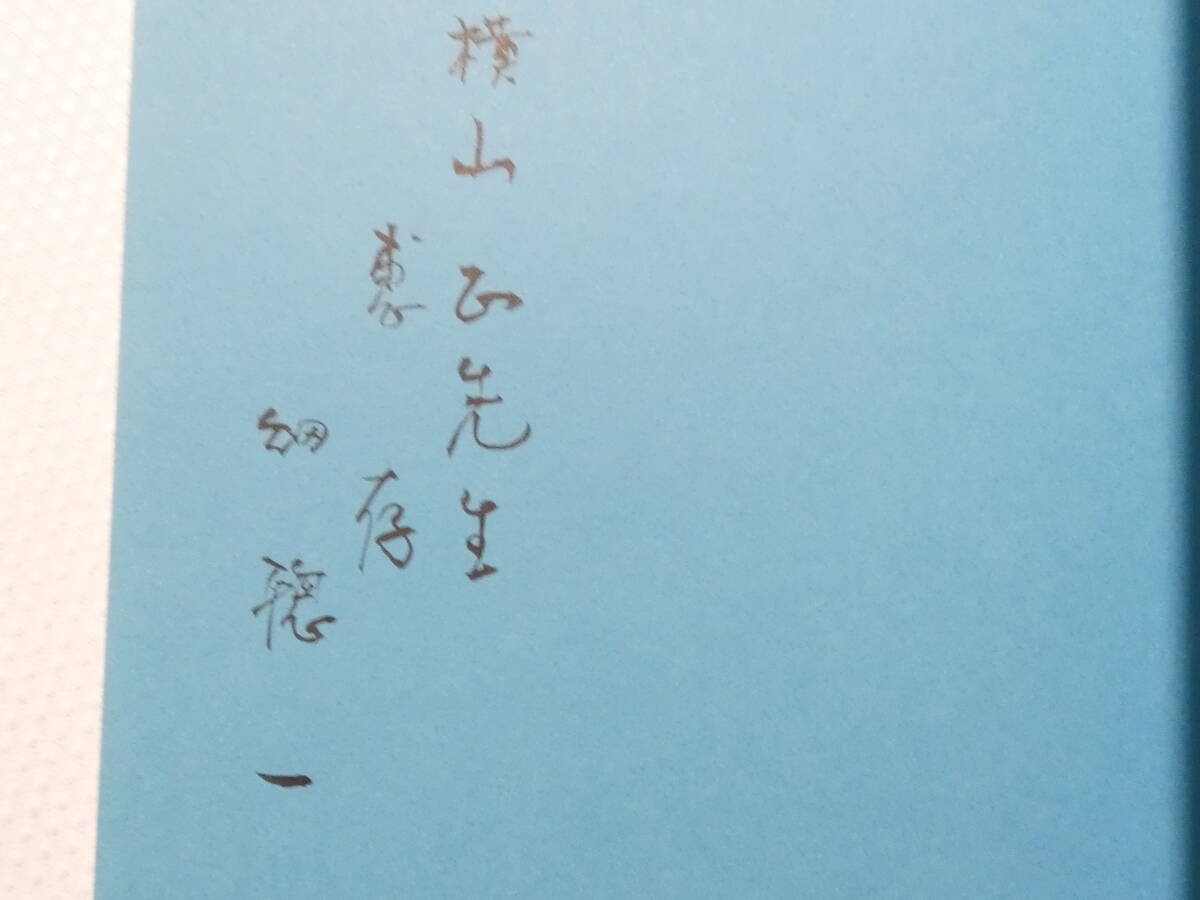 横山正先生
惠存
細聰一